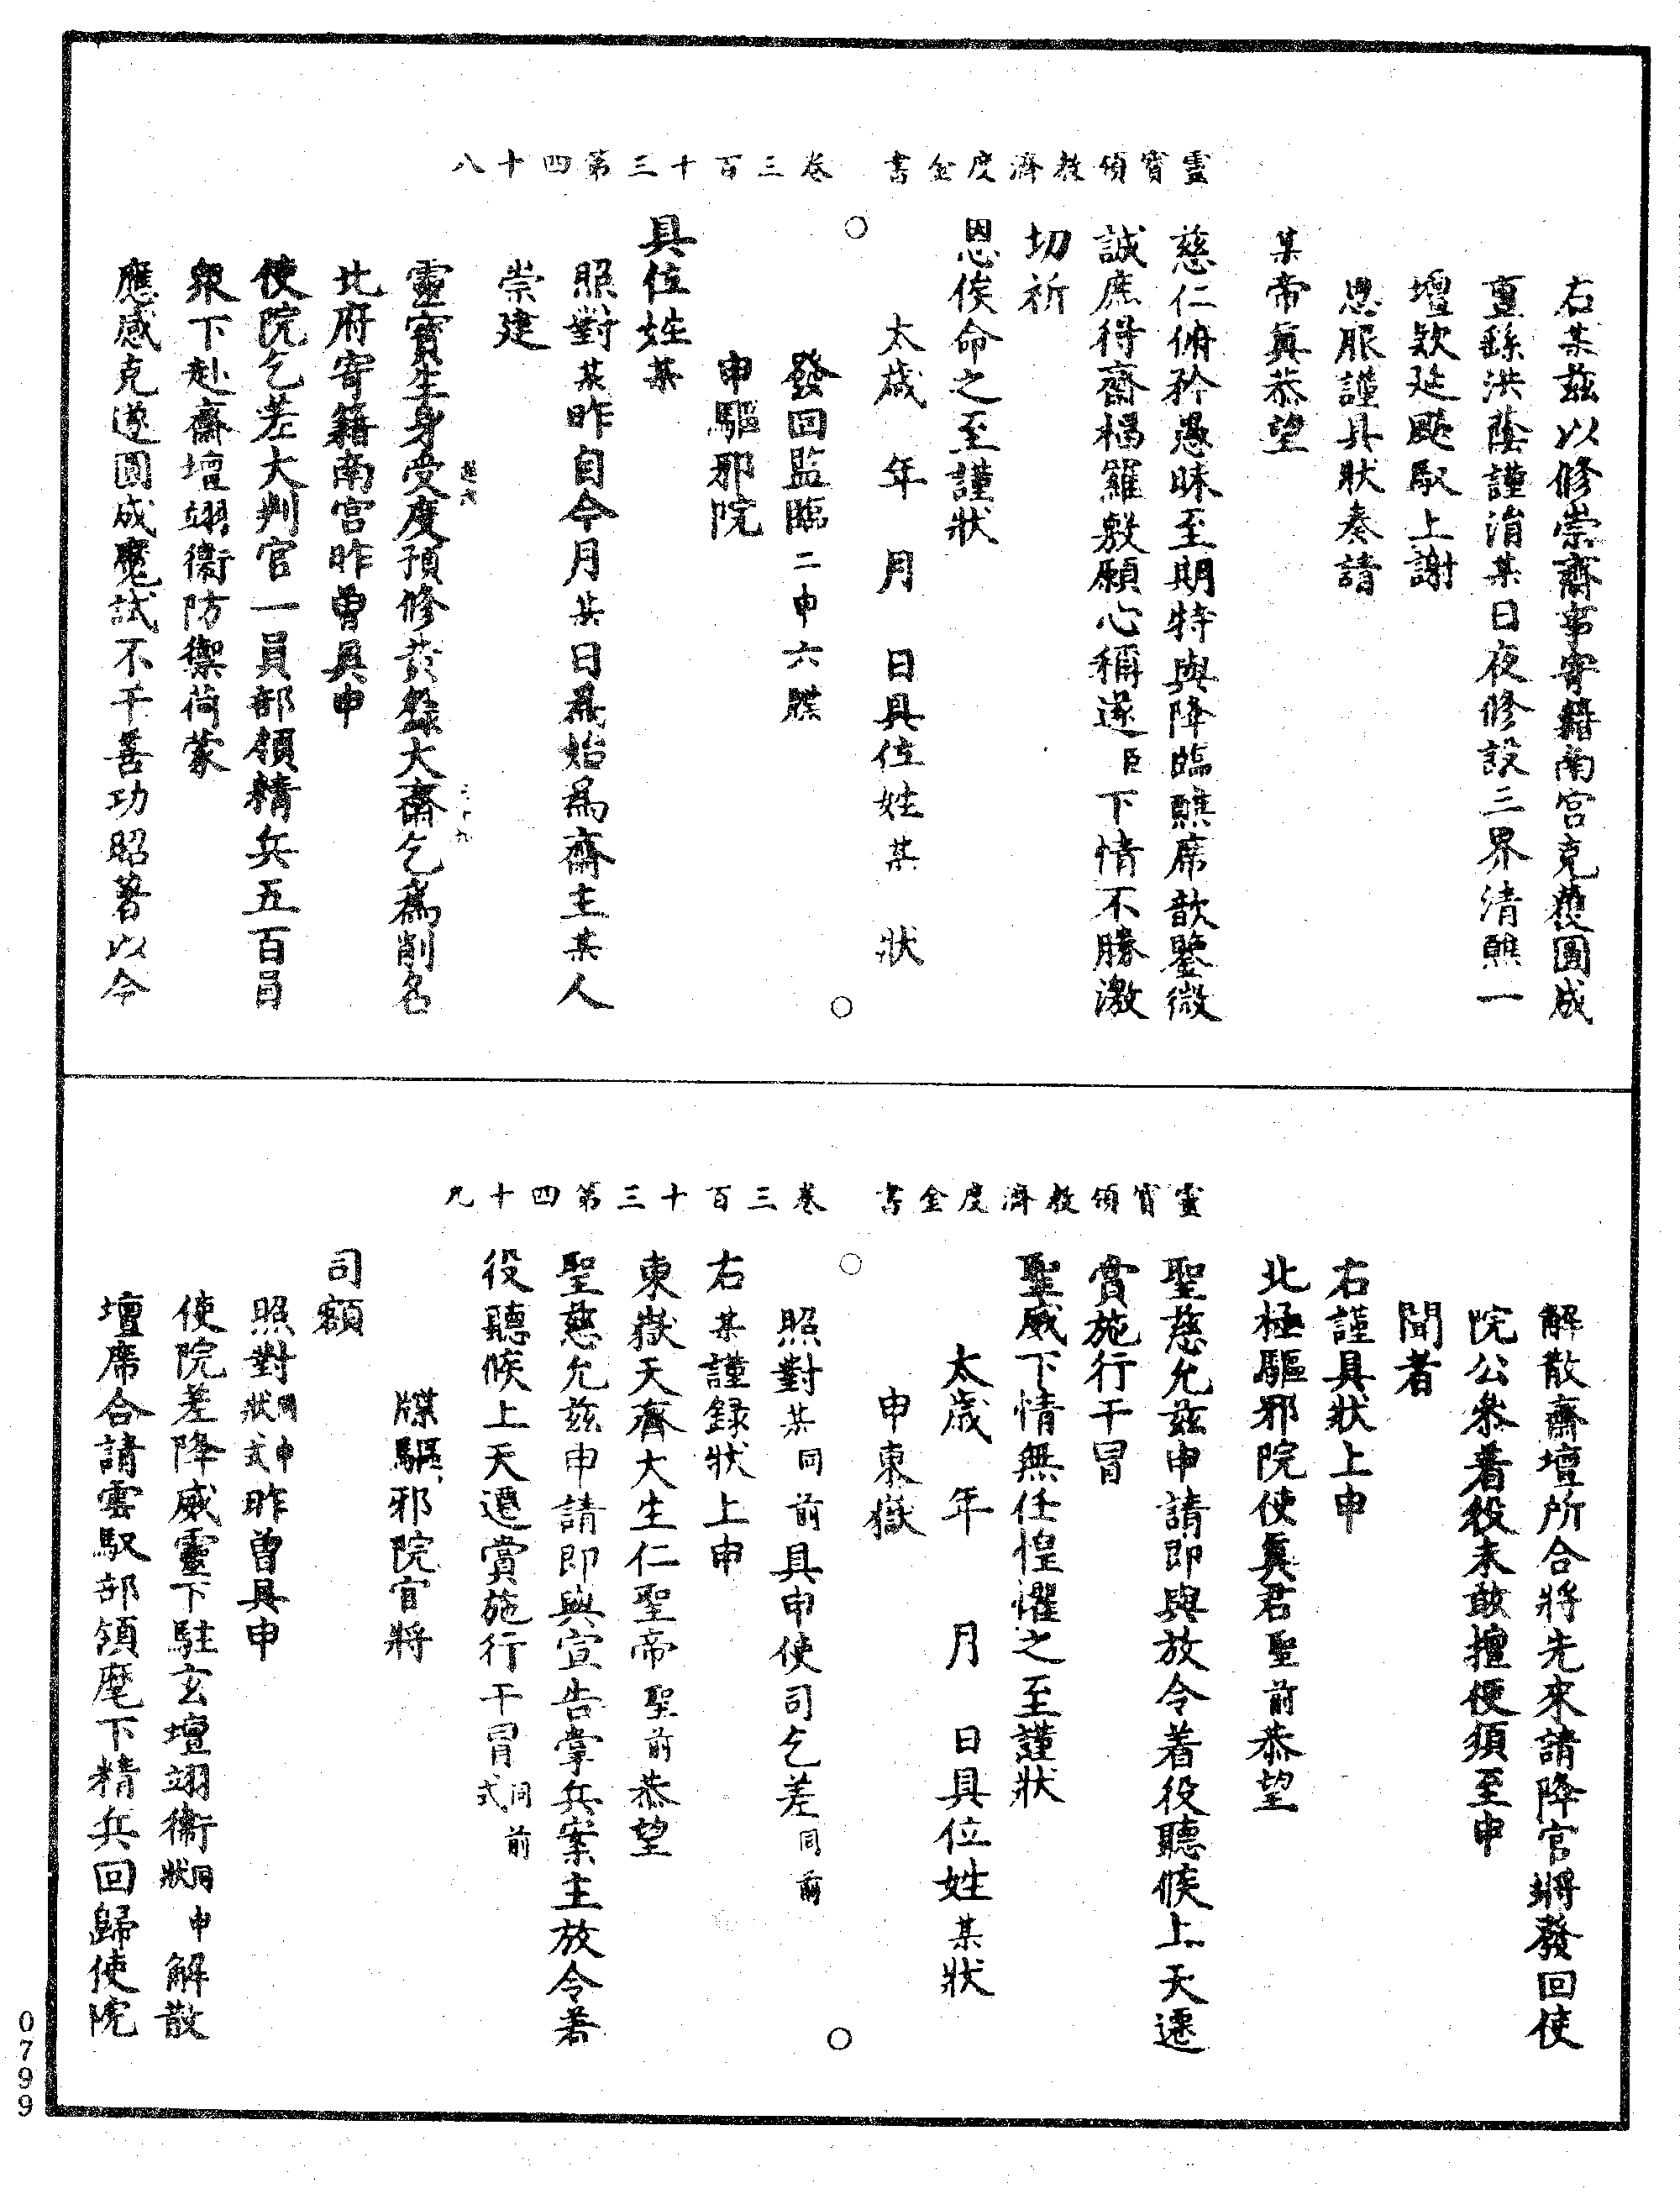 靈寶領教濟度金書 卷三百十三第四十八
右某茲以修崇齋事寄籍南宮克獲圓成
亶繇洪蔭謹涓某日夜修設三界清醮一
壇欵延飈馭上謝
恩服謹具狀奏請
某帝眞恭望
慈仁俯矜愚昧至期特與降臨醮席歆鑒微
誠庶得齋禓羅敷願心稱遂臣下情不勝激
切祈
恩俟命之至謹狀
太歲 年 月 日具位姓某 狀
發回監臨二申六牒
申驅邪院
具位姓某
照對某昨自今月某日爲始爲齋主某人
崇建
靈寶生身受度預修黃籙大齋乞爲削名
北府寄籍南宮昨曾具申
使院乞差大判官一員部領精兵五百員
衆下赴齋壇翊衞防禦荷蒙
應感克遂圓成魔試不干善功昭著以今
靈寶領教濟度金書 卷三百十三第四十九
解散齋壇所合將先來請降官將發回使
院公叅著役未敢擅便須至申
聞者
右謹具狀上申
北極驅邪院使眞君聖前恭望
聖慈允茲申請即與放令着役聽候上天遷
賞施行干冒
聖威下情無任惶懼之至謹狀
太歲 年 月 日具位姓某狀
申東嶽
照對某同前具申使司乞差同前
右某謹録狀上申
東嶽天齊大生仁聖帝聖前恭望
聖慈允茲申請即與宣告掌兵案主放令着
役聽候上天遷賞施行干冒同前式
牒驅邪院官將
司額
照對同申狀式昨曾具申
使院差降威靈下駐玄壇翊衞同申狀解散
壇席合請雲馭部領麾下精兵回歸使院
0799